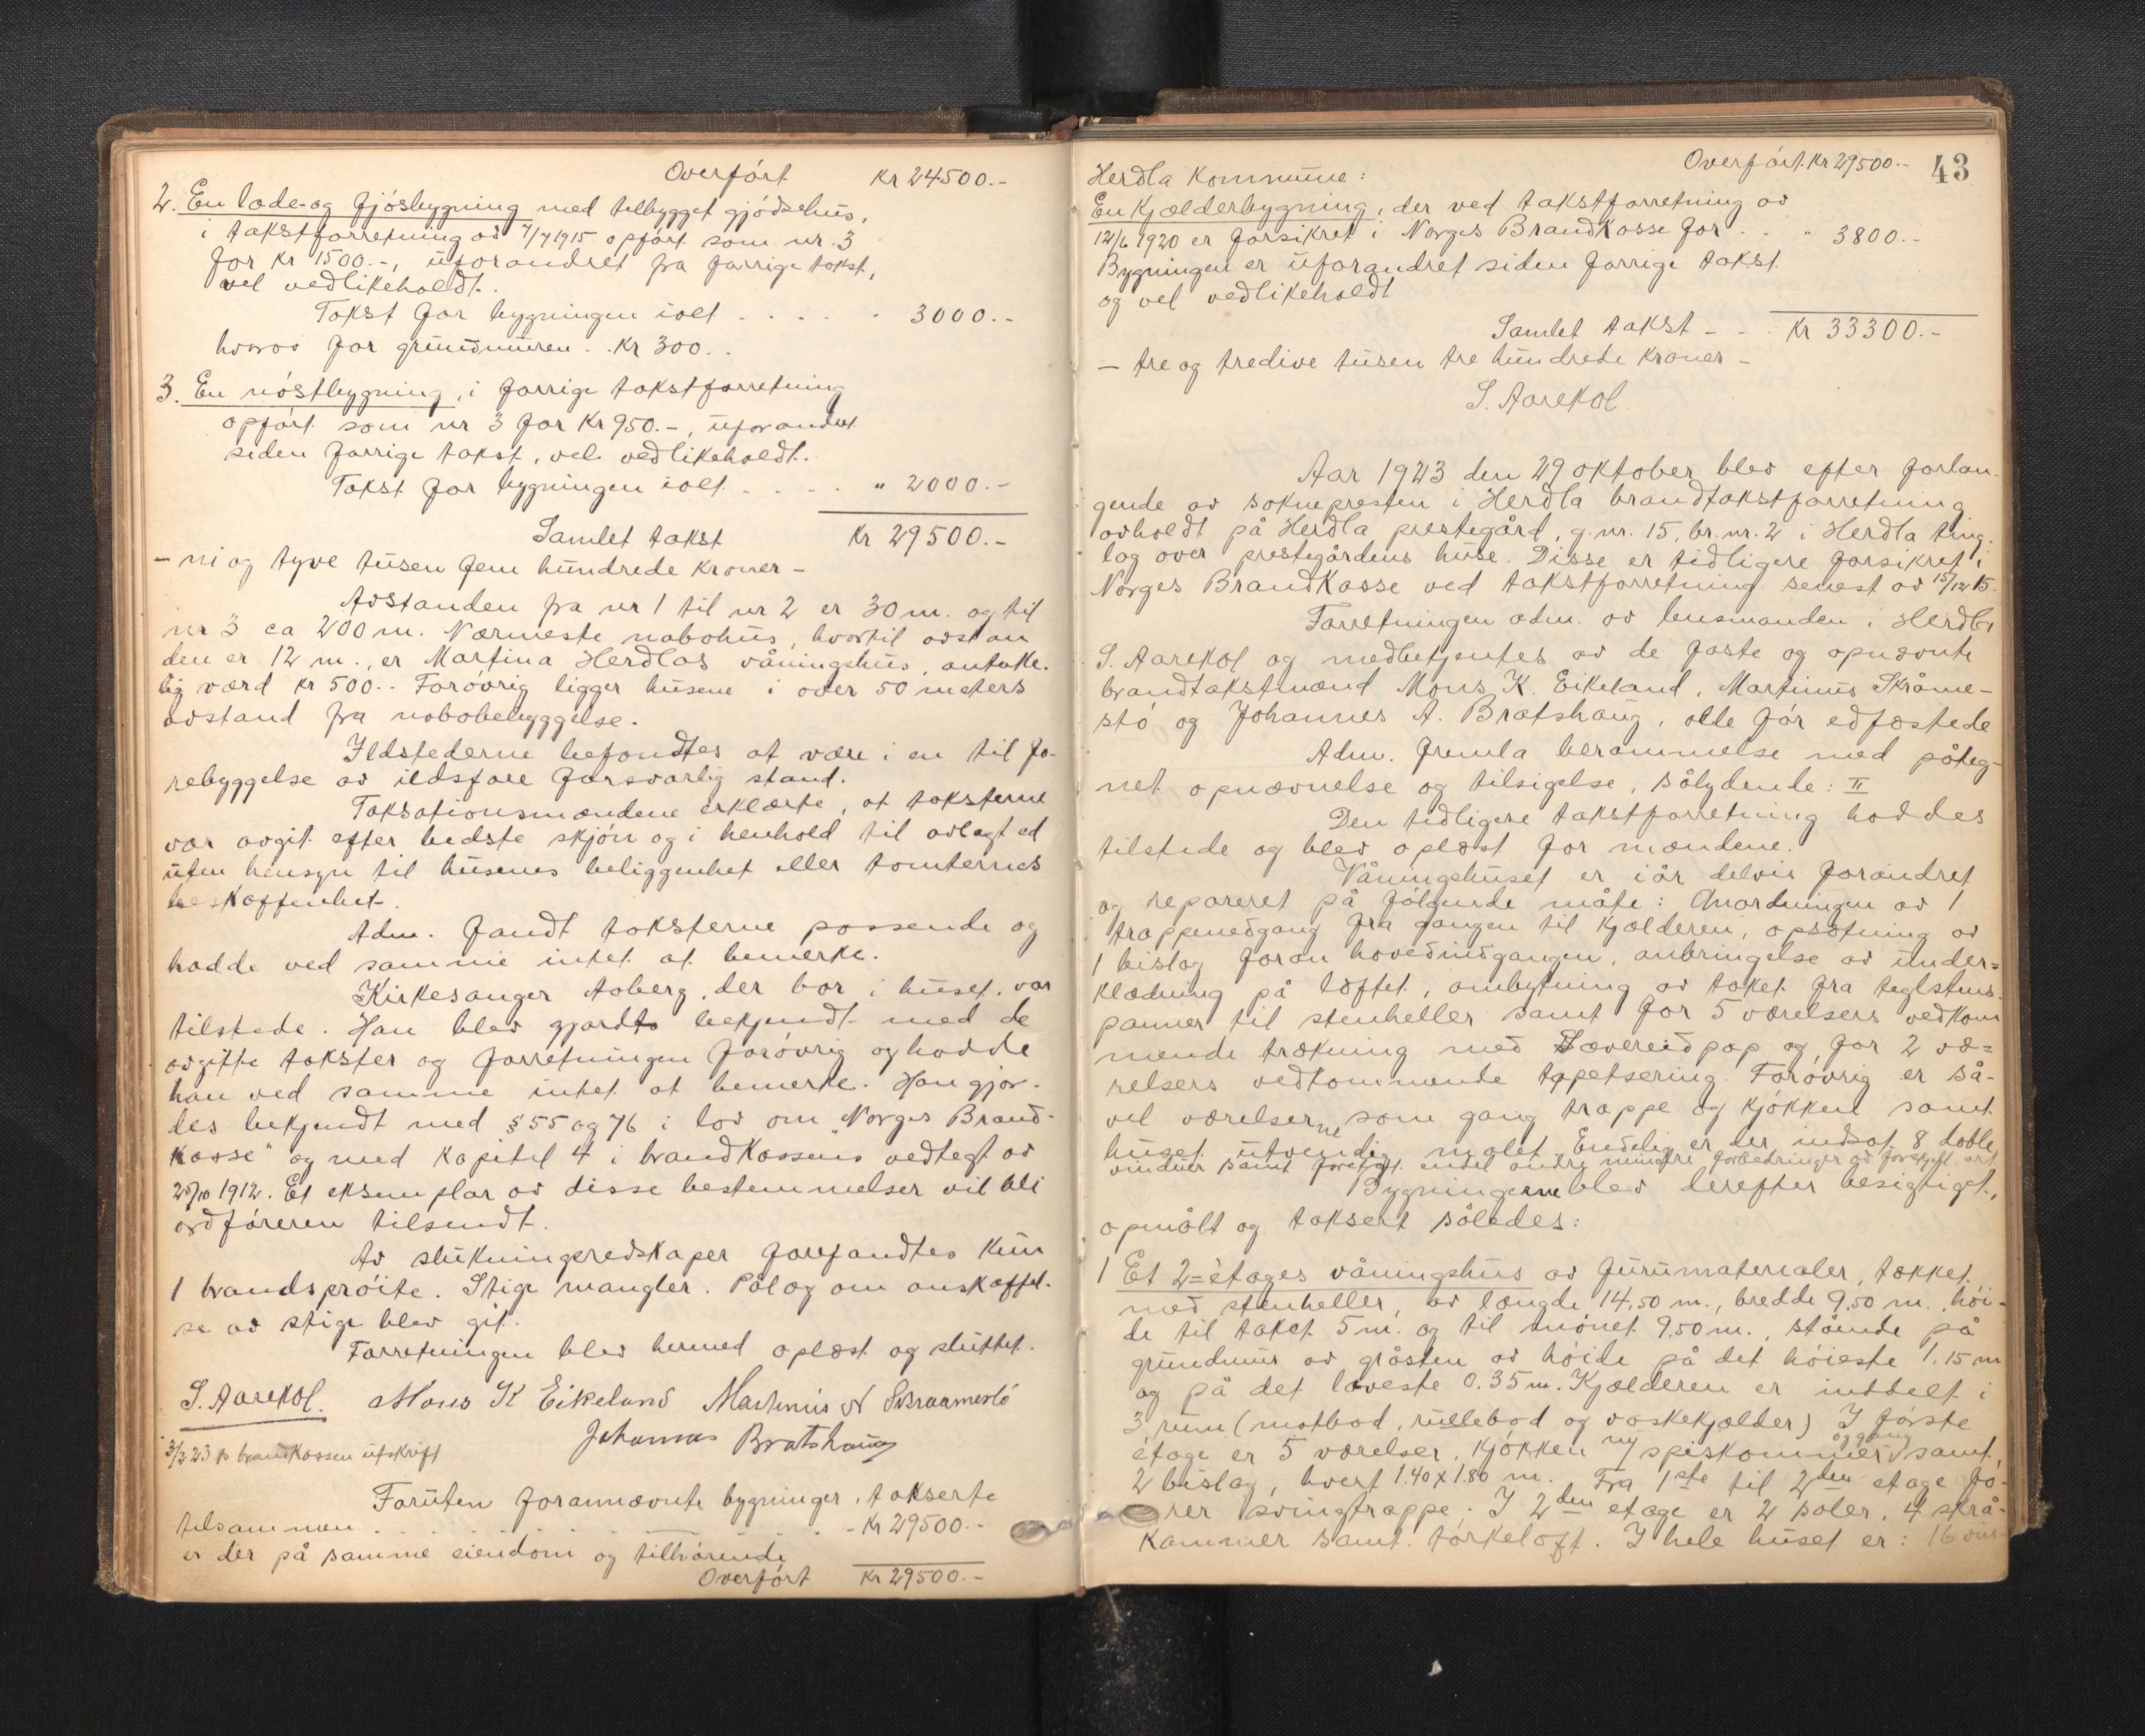 Overført Kr 24500.-
2. En lade- og fjøsbygning med tilbygget gjødselhus,
i takstforretning av 7/7 1915 opført som nr. 3
for kr 1500.-, uforandret fra forrige takst,
vel vedlikeholdt.
Takst for bygningen ialt . . . . . 3000.-
hvorav for grundmuren . . Kr 300. .
3. En nøstbygning, i forrige takstforretning
opført som nr 3 for Kr 950.-, uforandret
siden forrige takst, vel vedlikeholdt.
Takst for bygningen ialt . . . . " 2000.-
Samlet takst Kr 29500.-
- ni og tyve tusen fem hundrede kroner -
Avstanden fra nr 1 til nr 2 er 30 m. og til
nr 3 ca 200 m. Nærmeste nabohus, hvortil avstan
den er 12 m., er Martina Herdlas våningshus, antake-
lig værd kr 500.. Forøvrig ligger husene i over 50 meters
avstand fra nabobebyggelse.
Ildstederne befandtes at være i en til fo-
rebyggelse av ildsfare forsvarlig stand.
Taksationsmændene erklærte, at taksterne
var avgit efter bedste skjøn og i henhold til avlagt ed
uten hensyn til husenes beliggenhet eller tomternes
beskaffenhet.
Adm. fandt taksterne passende og
hadde ved samme intet at bemerke.
Kirkesanger Aaberg, der bor i huset, var
tilstede. Han blev gjordt bekjendt med de
avgitte takster og forretningen forøvrig og hadde
han ved samme intet at bemerke. Han gjor-
des bekjendt med § 55 og 76 i lov om "Norges Brand-
kasse" og med kapitel 4 i brandkassens vedtegt av
25/10 1912. Et eksemplar av disse bestemmelser vil bli
ordføreren tilsendt.
Av slukningsredskaper forefandtes kun
1 brandsprøite. Stige mangler. Pålæg om anskaffel-
se av stige blev git.
Forretningen blev hermed oplæst og sluttet.
S. Aarekol. Mons K Eikeland Martinus N Skraamestø
Johannes Bratshaug
3/2 23 p brandkassen utskrift
Foruten forannævnte bygninger, takserte
tilsammen . . . . . . . - Kr 29500.-
er der på samme eiendom og tilhørende
Overført Kr 29500.-
Overført. Kr 29500.- 43
Herdla kommune:
En kjælderbygning, der ved takstforretning av
12/6 1920 er forsikret i Norges Brandkasse for . . " 3800.-
Bygningen er uforandret siden forrige takst
og vel vedlikeholdt
Samlet takst - - . Kr 33300.-
- tre og tredive tusen tre hundrede kroner -
S. Aarekol
Aar 1923 den 29 oktober blev efter forlan-
gende av sokneprest en i Herdla brandtakstforretning
avholdt på Herdla prestegård, g.nr. 15, br.nr. 2 i Herdla ting-
lag over prestegårdens huse. Disse er tidligere forsikret i
Norges Brandkasse ved takstforretning senest av 15/12 15.
Forretningen adm. av lensmanden i Herdla
S. Aarekol og medbetjentes av de faste og opnævnte
brandtakstmænd Mons K. Eikeland, Martinus Skråme-
stø og Johannes A. Bratshaug, alle før edfæstede
Adm. fremla berammelse med påteg-
net opnævnelse og tilsigelse, sålydende: II
Den tidligere takstforretning haddes
tilstede og blev oplæst for mændene.
Våningshuset er iår delvis forandret
og reparert på følgende måte: Anordningen av 1
trappenedgang fra gangen til kjælderen, opsætning av
1 bislag foran hovedindgangen, anbringelse av under-
klædning på loftet, ombytning av taket fra teglstens-
panner til stenheller samt for 5 værelsers vedkom
mende trækning med Sævereidpap og for 2 væ-
relsers vedkommende tapetsering. Forøvrig er så-
vel værelserne som gang trappe og kjøkken samt
huset utvendig malet. Endelig er der indsat 8 doble
vinduer samt foretat endel andre mindre forbedringer av forskjel. art
Bygningerne blev derefter besigtiget,
opmålt og taksert således:
1 Et 2-etages våningshus av furumaterialer, tækket
med stenheller, av længde 14,50 m., bredde 9,50 m. høi-
de til taket 5 m. og til mønet 9.50 m., stående på
grundmur av gråsten av høide på det høieste 1.15 m
og på det laveste 0.35 m. Kjælderen er inddelt i
3 rum (matbod, rullebod og vaskekjælder) I første
etage er 5 værelser, kjøkken, spiskammer og gang samt
2 bislag, hvert 1.40 x 1.80 m. Fra 1ste til 2den etage fø-
rer svingtrappe. I 2den etage er 2 saler, 4 skrå-
kammer samt tørkeloft. I hele huset er: 16 vin-